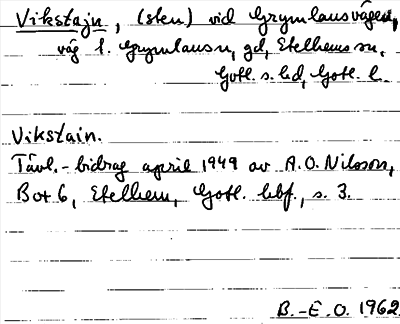 Vikstajn, (sten) vid Grymlausvägen,
väg t. Grymlausn, gd, Etelhems sn,
Gotl. s. hd, Gotl. l.
Vikstain.
Tävl.-bidrag april 1949 av A.O. Nilsson,
Box 6, Etelhem, Gotl. hbf., s. 3.
B.-E.O. 1962